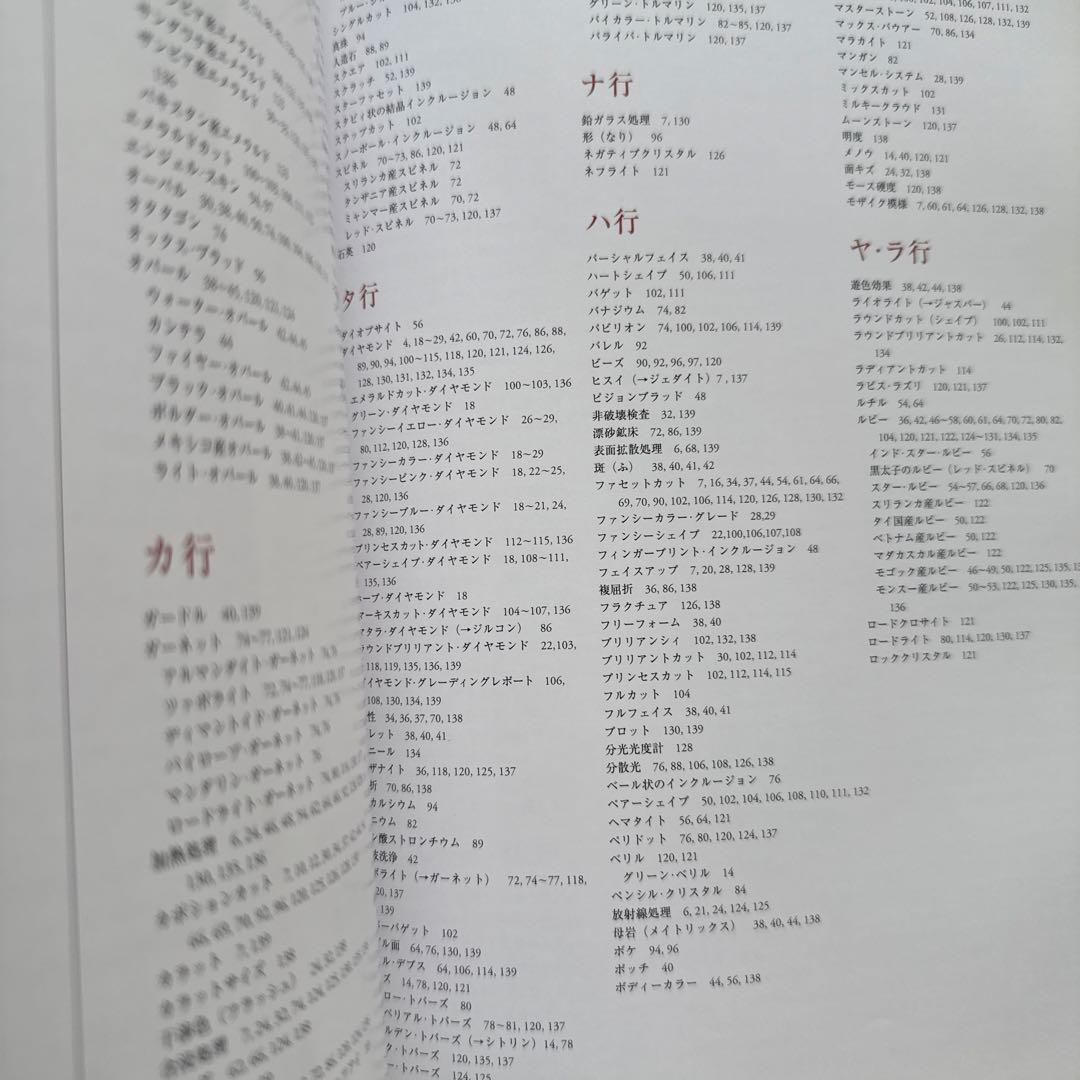 オーバル
オクタゴン 54
オックス・ブラッド 96
オパール
ウォーター・オパール
カンテラ
ファイヤー・オパール
ブラック・オパール
ボルダー・オパール
メキシコ産オパール
ライト・オパール
カ行
ガードル 40, 139
ガーネット 74~77, 121, 124
アルマンダイト・ガーネット
ツァボライト
デイマントイド・ガーネット
パイロープ・ガーネット
マンダリン・ガーネット
ロードライト・ガーネット
加熱処理
カボションカット
カラット 7, 139
カラットサイズ
シングルカット 104, 132,
真珠 94
人造石 88, 89
スクエア 102, 111
スクラッチ 52, 139
スターファセット 139
スタビィ状の結晶インクルージョン 48
ステップカット 102
スノーボール・インクルージョン 48, 64
スピネル 70~73, 86, 120, 121
スリランカ産スピネル 72
タンザニア産スピネル 72
ミャンマー産スピネル 70, 72
レッド・スピネル 70~73, 120, 137
石英 120
タ行
ダイオプサイト 56
ダイヤモンド 4, 18~29, 42, 60, 70, 72, 76, 86, 88,
89, 90, 94, 100~115, 118, 120, 121, 124, 126,
128, 130, 131, 132, 134, 135
エメラルドカット・ダイヤモンド 100~103, 136
グリーン・ダイヤモンド 18
ファンシーイエロー・ダイヤモンド 26~29,
80, 112, 120, 128, 136
ファンシーカラー・ダイヤモンド 18~29
ファンシーピンク・ダイヤモンド 18, 22~25,
28, 120, 136
ファンシーブルー・ダイヤモンド 18~21, 24,
28, 89, 120, 136
プリンセスカット・ダイヤモンド 112~115, 136
ペアーシェイプ・ダイヤモンド 18, 108~111,
135, 136
ホープ・ダイヤモンド 18
マーキスカット・ダイヤモンド 104~107, 136
マタラ・ダイヤモンド（→ジルコン） 86
ラウンドブリリアント・ダイヤモンド 22, 103,
118, 119, 135, 136, 139
ダイヤモンド・グレーディングレポート 106,
108, 130, 134, 139
性 34, 36, 37, 70, 138
レット 38, 40, 41
ニール 134
ザナイト 36, 118, 120, 125, 137
折 70, 86, 138
カルシウム 94
ニウム 82
ン酸ストロンチウム 89
洗浄 42
ボライト（→ガーネット） 72, 74~77, 118,
120, 137
139
ーバゲット 102
ル面 64, 76, 130, 139
ル・デプス 64, 106, 114, 139
ズ 14, 78, 120, 121
ロー・トパーズ 80
ペリアル・トパーズ 78~81, 120, 137
ルデン・トパーズ（→シトリン） 14, 78
ク・トパーズ 120, 135, 137
ー・トパーズ 124, 125
グリーン・トルマリン 120, 135, 137
バイカラー・トルマリン 82~85, 120, 137
パライバ・トルマリン 120, 137
ナ行
鉛ガラス処理 7, 130
形（なり） 96
ネガティブクリスタル 126
ネフライト 121
ハ行
パーシャルフェイス 38, 40, 41
ハートシェイプ 50, 106, 111
バゲット 102, 111
バナジウム 74, 82
パビリオン 74, 100, 102, 106, 114, 139
バレル 92
ビーズ 90, 92, 96, 97, 120
ヒスイ（→ジェダイト） 7, 137
ピジョンブラッド 48
非破壊検査 32, 139
漂砂鉱床 72, 86, 139
表面拡散処理 6, 68, 139
斑（ふ） 38, 40, 41, 42
ファセットカット 7, 16, 34, 37, 44, 54, 61, 64, 66,
69, 70, 90, 102, 106, 114, 120, 126, 128, 130, 132
ファンシーカラー・グレード 28,29
ファンシーシェイプ 22,100,106,107,108
フィンガープリント・インクルージョン 48
フェイスアップ 7, 20, 28, 128, 139
複屈折 36, 86, 138
フラクチュア 126, 138
フリーフォーム 38, 40
ブリリアンシィ 102, 132, 138
ブリリアントカット 30, 102, 112, 114
プリンセスカット 102, 112, 114, 115
フルカット 104
フルフェイス 38, 40, 41
ブロット 130, 139
分光光度計 128
分散光 76, 88, 106, 108, 126, 138
ベール状のインクルージョン 76
ペアーシェイプ 50, 102, 104, 106, 108, 110, 111, 132
ヘマタイト 56, 64, 121
ペリドット 76, 80, 120, 124, 137
ベリル 120, 121
グリーン・ベリル 14
ペンシル・クリスタル 84
放射線処理 6, 21, 24, 124, 125
母岩（メイトリックス） 38, 40, 44, 138
ボケ 94, 96
ポッチ 40
ボディーカラー 44, 56, 138
マスターストーン 52, 108, 126, 128, 132, 139
マックス・バウアー 70, 86, 134
マラカイト 121
マンガン 82
マンセル・システム 28, 139
ミックスカット 102
ミルキークラウド 131
ムーンストーン 120, 137
明度 138
メノウ 14, 40, 120, 121
面キズ 24, 32, 138
モース硬度 120, 138
モザイク模様 7, 60, 61, 64, 126, 128, 132, 138
ヤ・ラ行
遊色効果 38, 42, 44, 138
ライオライト（→ジャスパー） 44
ラウンドカット（シェイプ） 100, 102, 111
ラウンドブリリアントカット 26, 112, 114, 132,
134
ラディアントカット 114
ラピス・ラズリ 120, 121, 137
ルチル 54, 64
ルビー 36, 42, 46~58, 60, 61, 64, 70, 72, 80, 82,
104, 120, 121, 122, 124~131, 134, 135
インド・スター・ルビー 56
黒太子のルビー（レッド・スピネル） 70
スター・ルビー 54~57, 66, 68, 120, 136
スリランカ産ルビー 122
タイ国産ルビー 50, 122
ベトナム産ルビー 50, 122
マダガスカル産ルビー 122
モゴック産ルビー 46~49, 50, 122, 125, 135,
モンスー産ルビー 50~53, 122, 125, 130, 135,
136
ロードクロサイト 121
ロードライト 80, 114, 120, 130, 137
ロッククリスタル 121